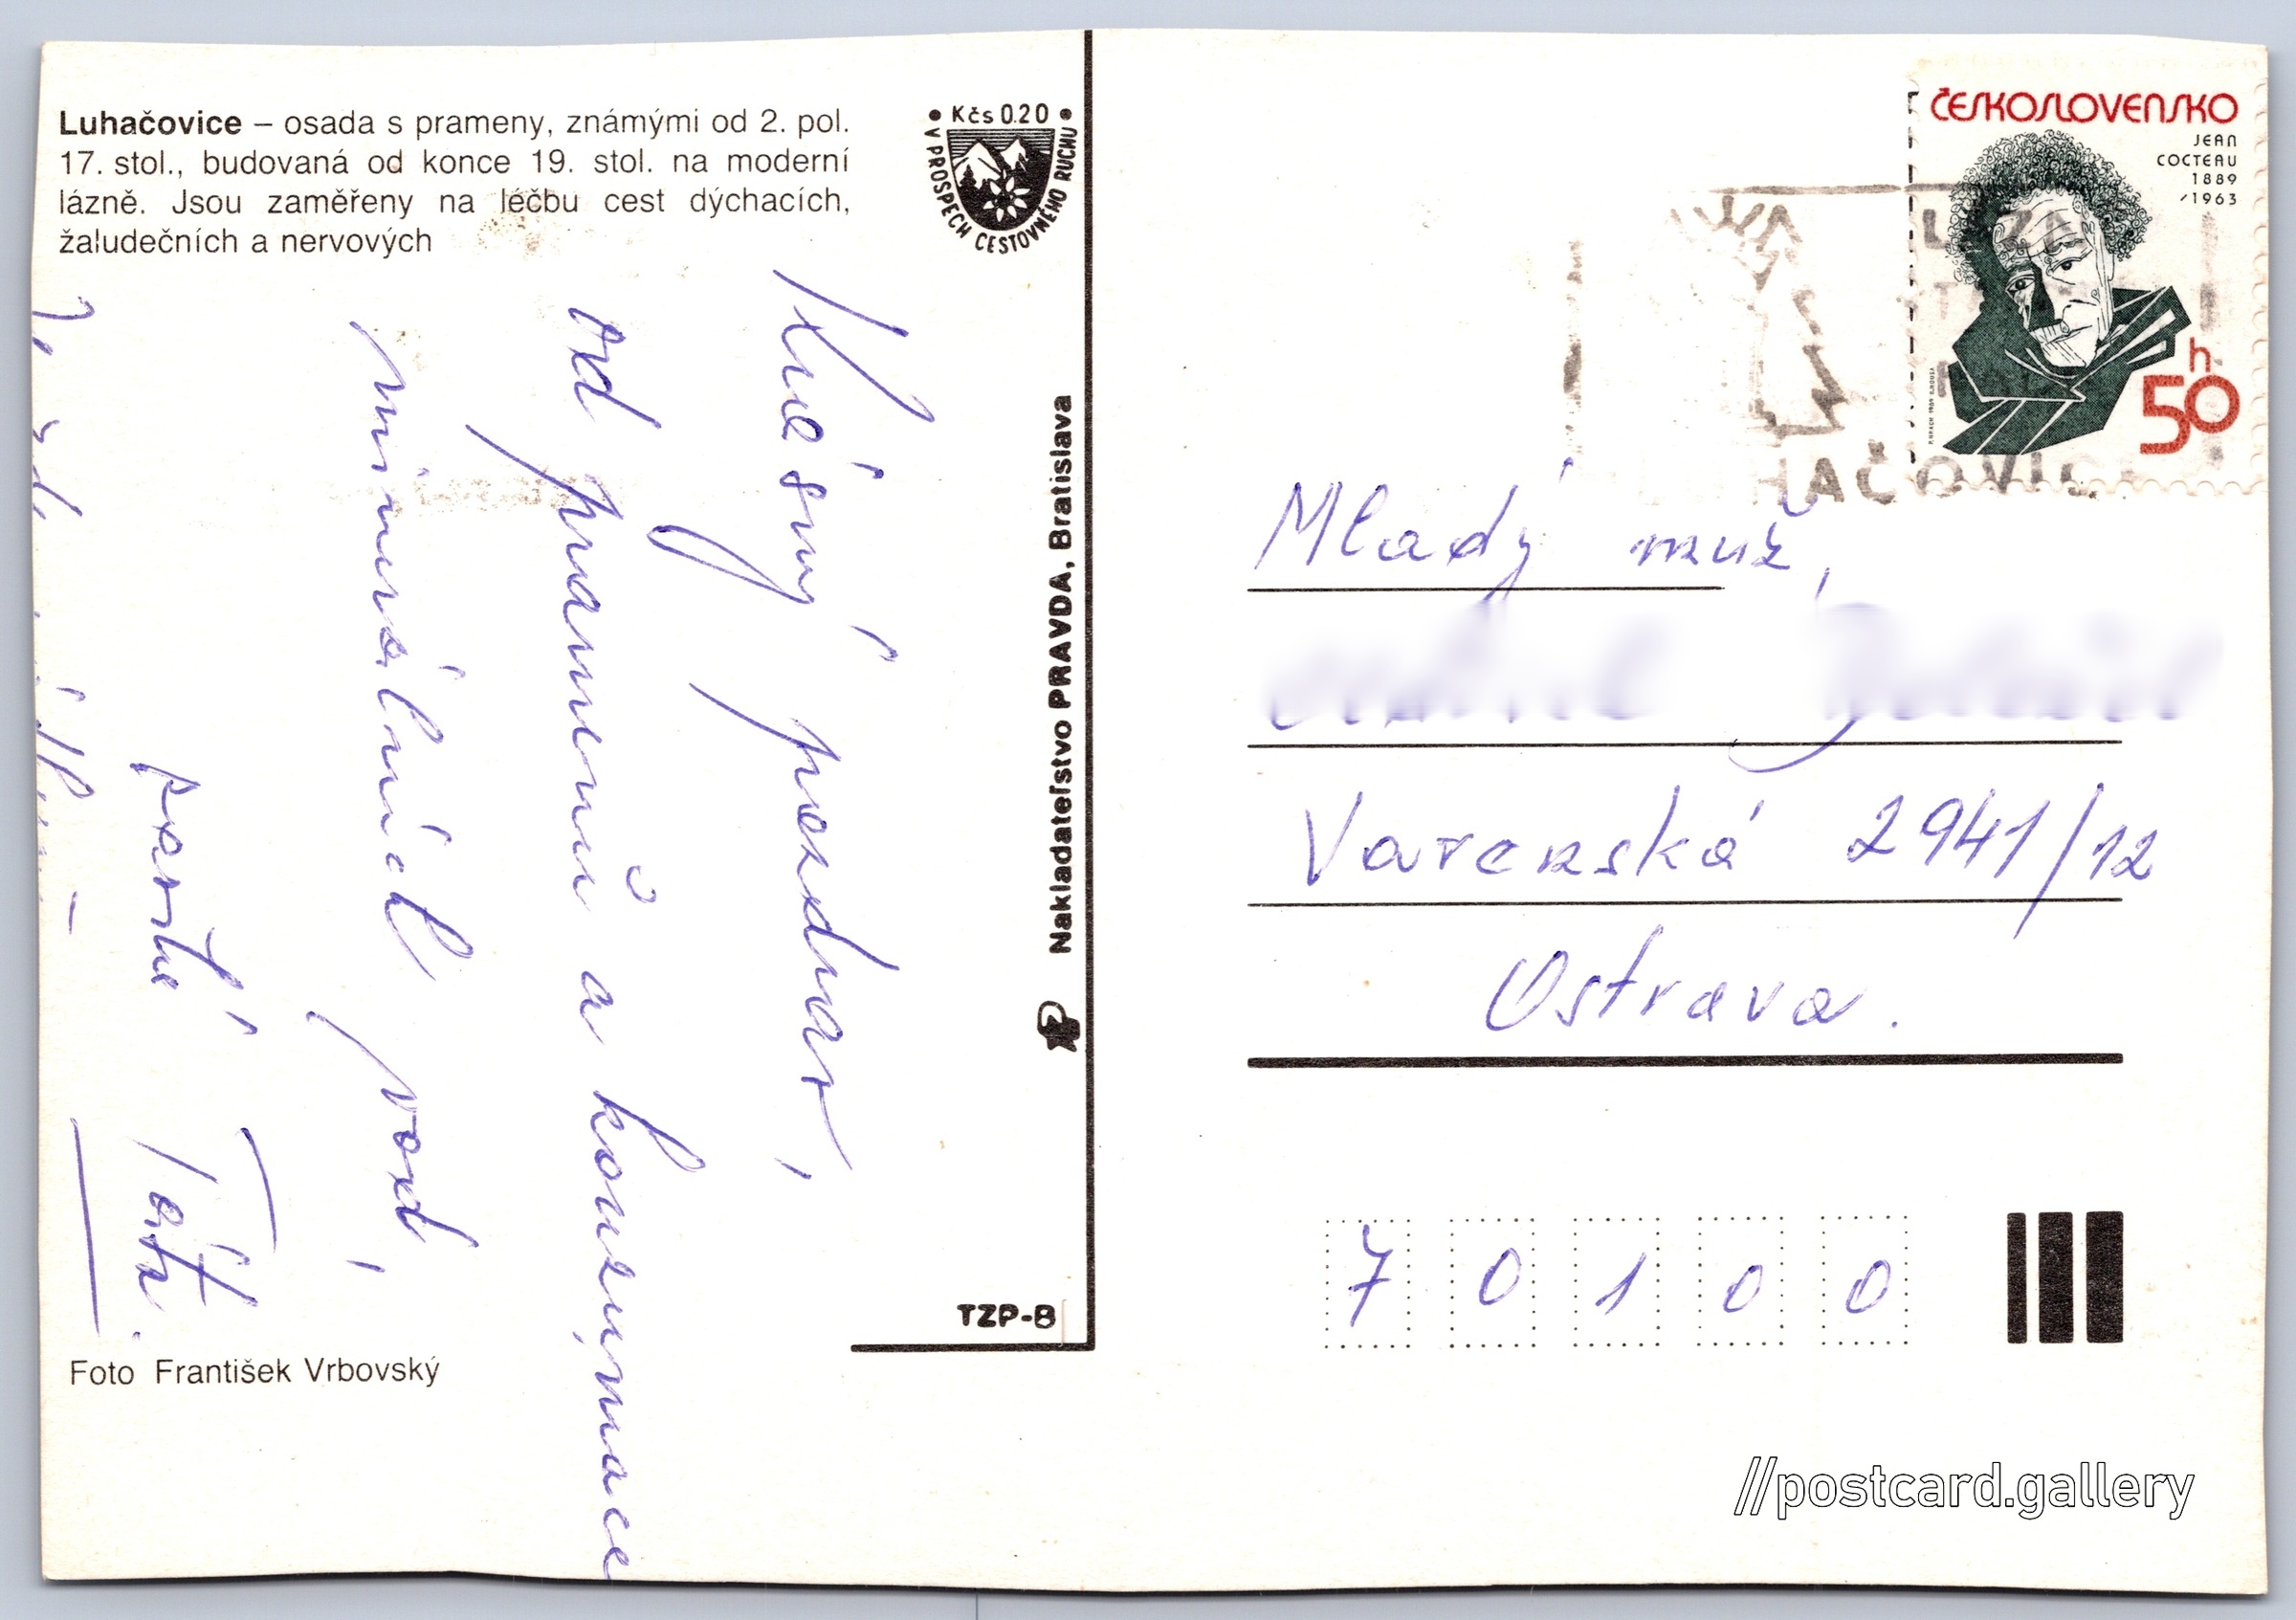 Luhačovice – osada s prameny, známými od 2. pol.
17. stol., budovaná od konce 19. stol. na moderní
lázně. Jsou zaměřeny na léčbu cest dýchacích,
žaludečních a nervových
• Kčs 0.20 •
V PROSPĚCH CESTOVNÉHO RUCHU
Krásný pozdrav,
od pramenů a konzumace
minerálních vod,
posílá Táta.
Nakladateľstvo PRAVDA, Bratislava
TZP-B
Foto František Vrbovský
ČESKOSLOVENSKO
JEAN
COCTEAU
1889
/1963
50 h
HAČOVIC
Mladý muž,
Varenská 2941/12
Ostrava.
70100
//postcard.gallery